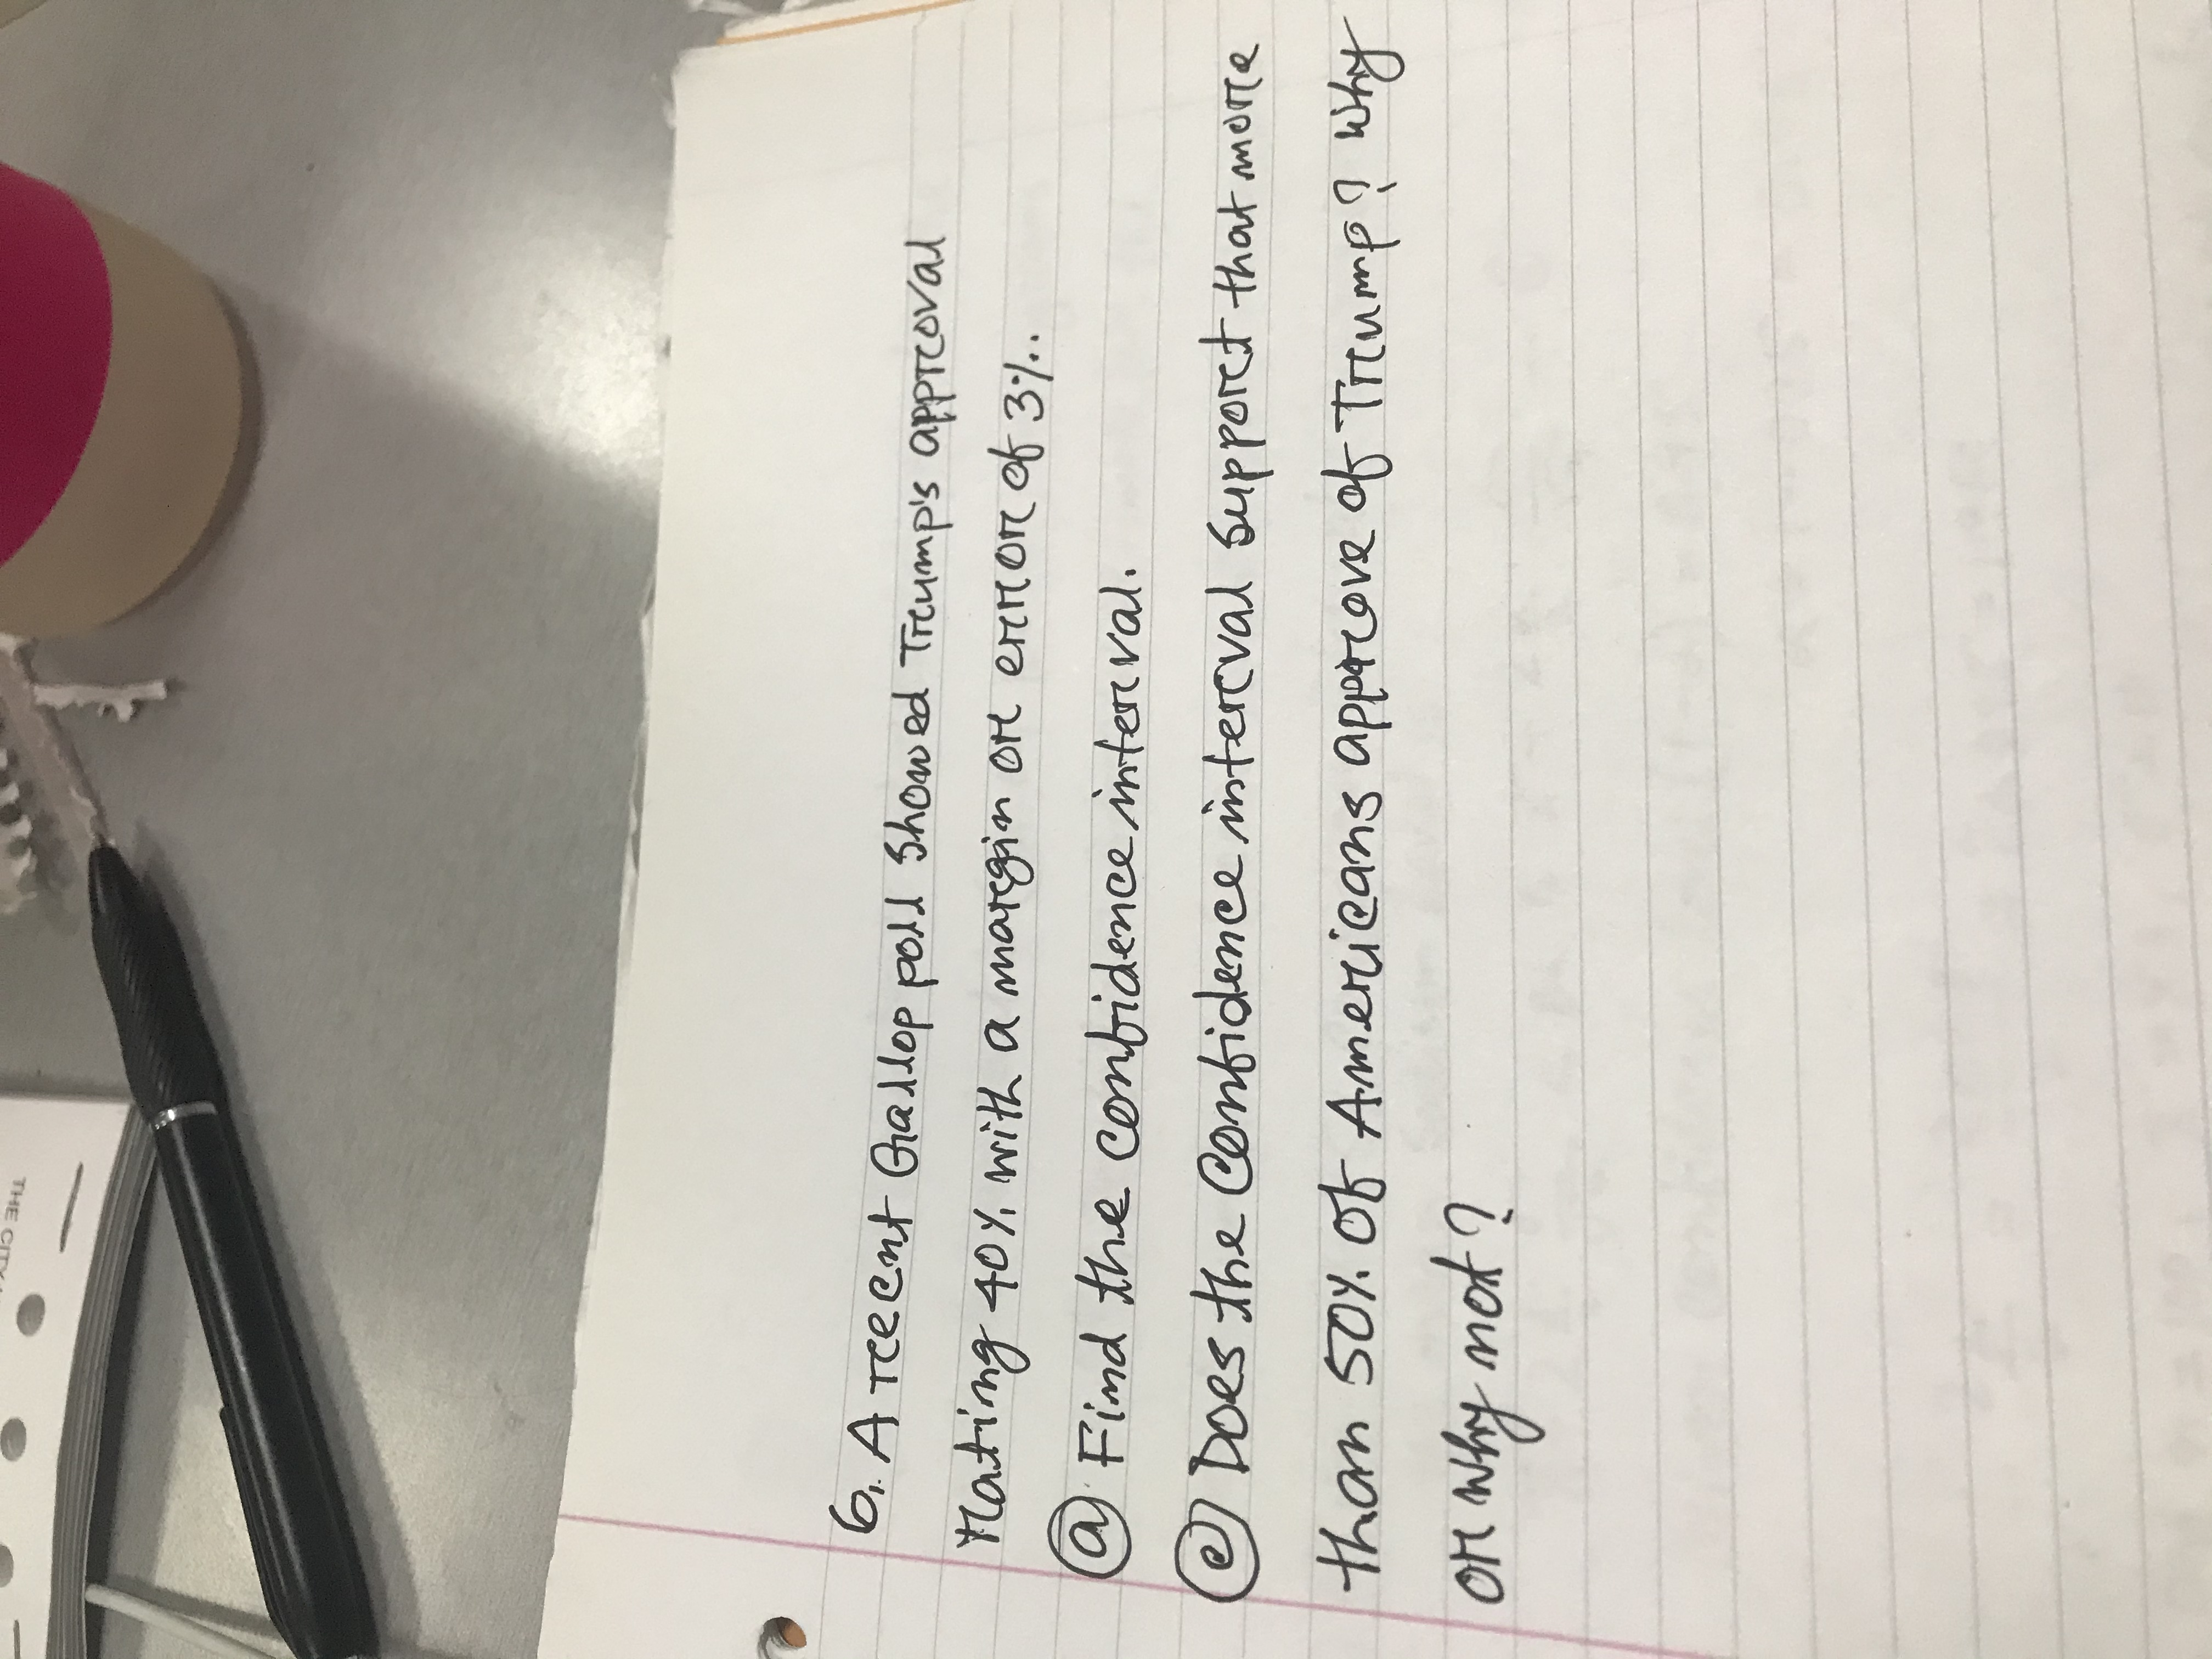 6. A recent Gallop poll showed Trump's approval
rating 40% with a margin or error of 3%.
ⓐ Find the confidence interval.
ⓒ Does the confidence interval support that more
than 50% of Americans approve of Trump? why
or why not?
THE CITY